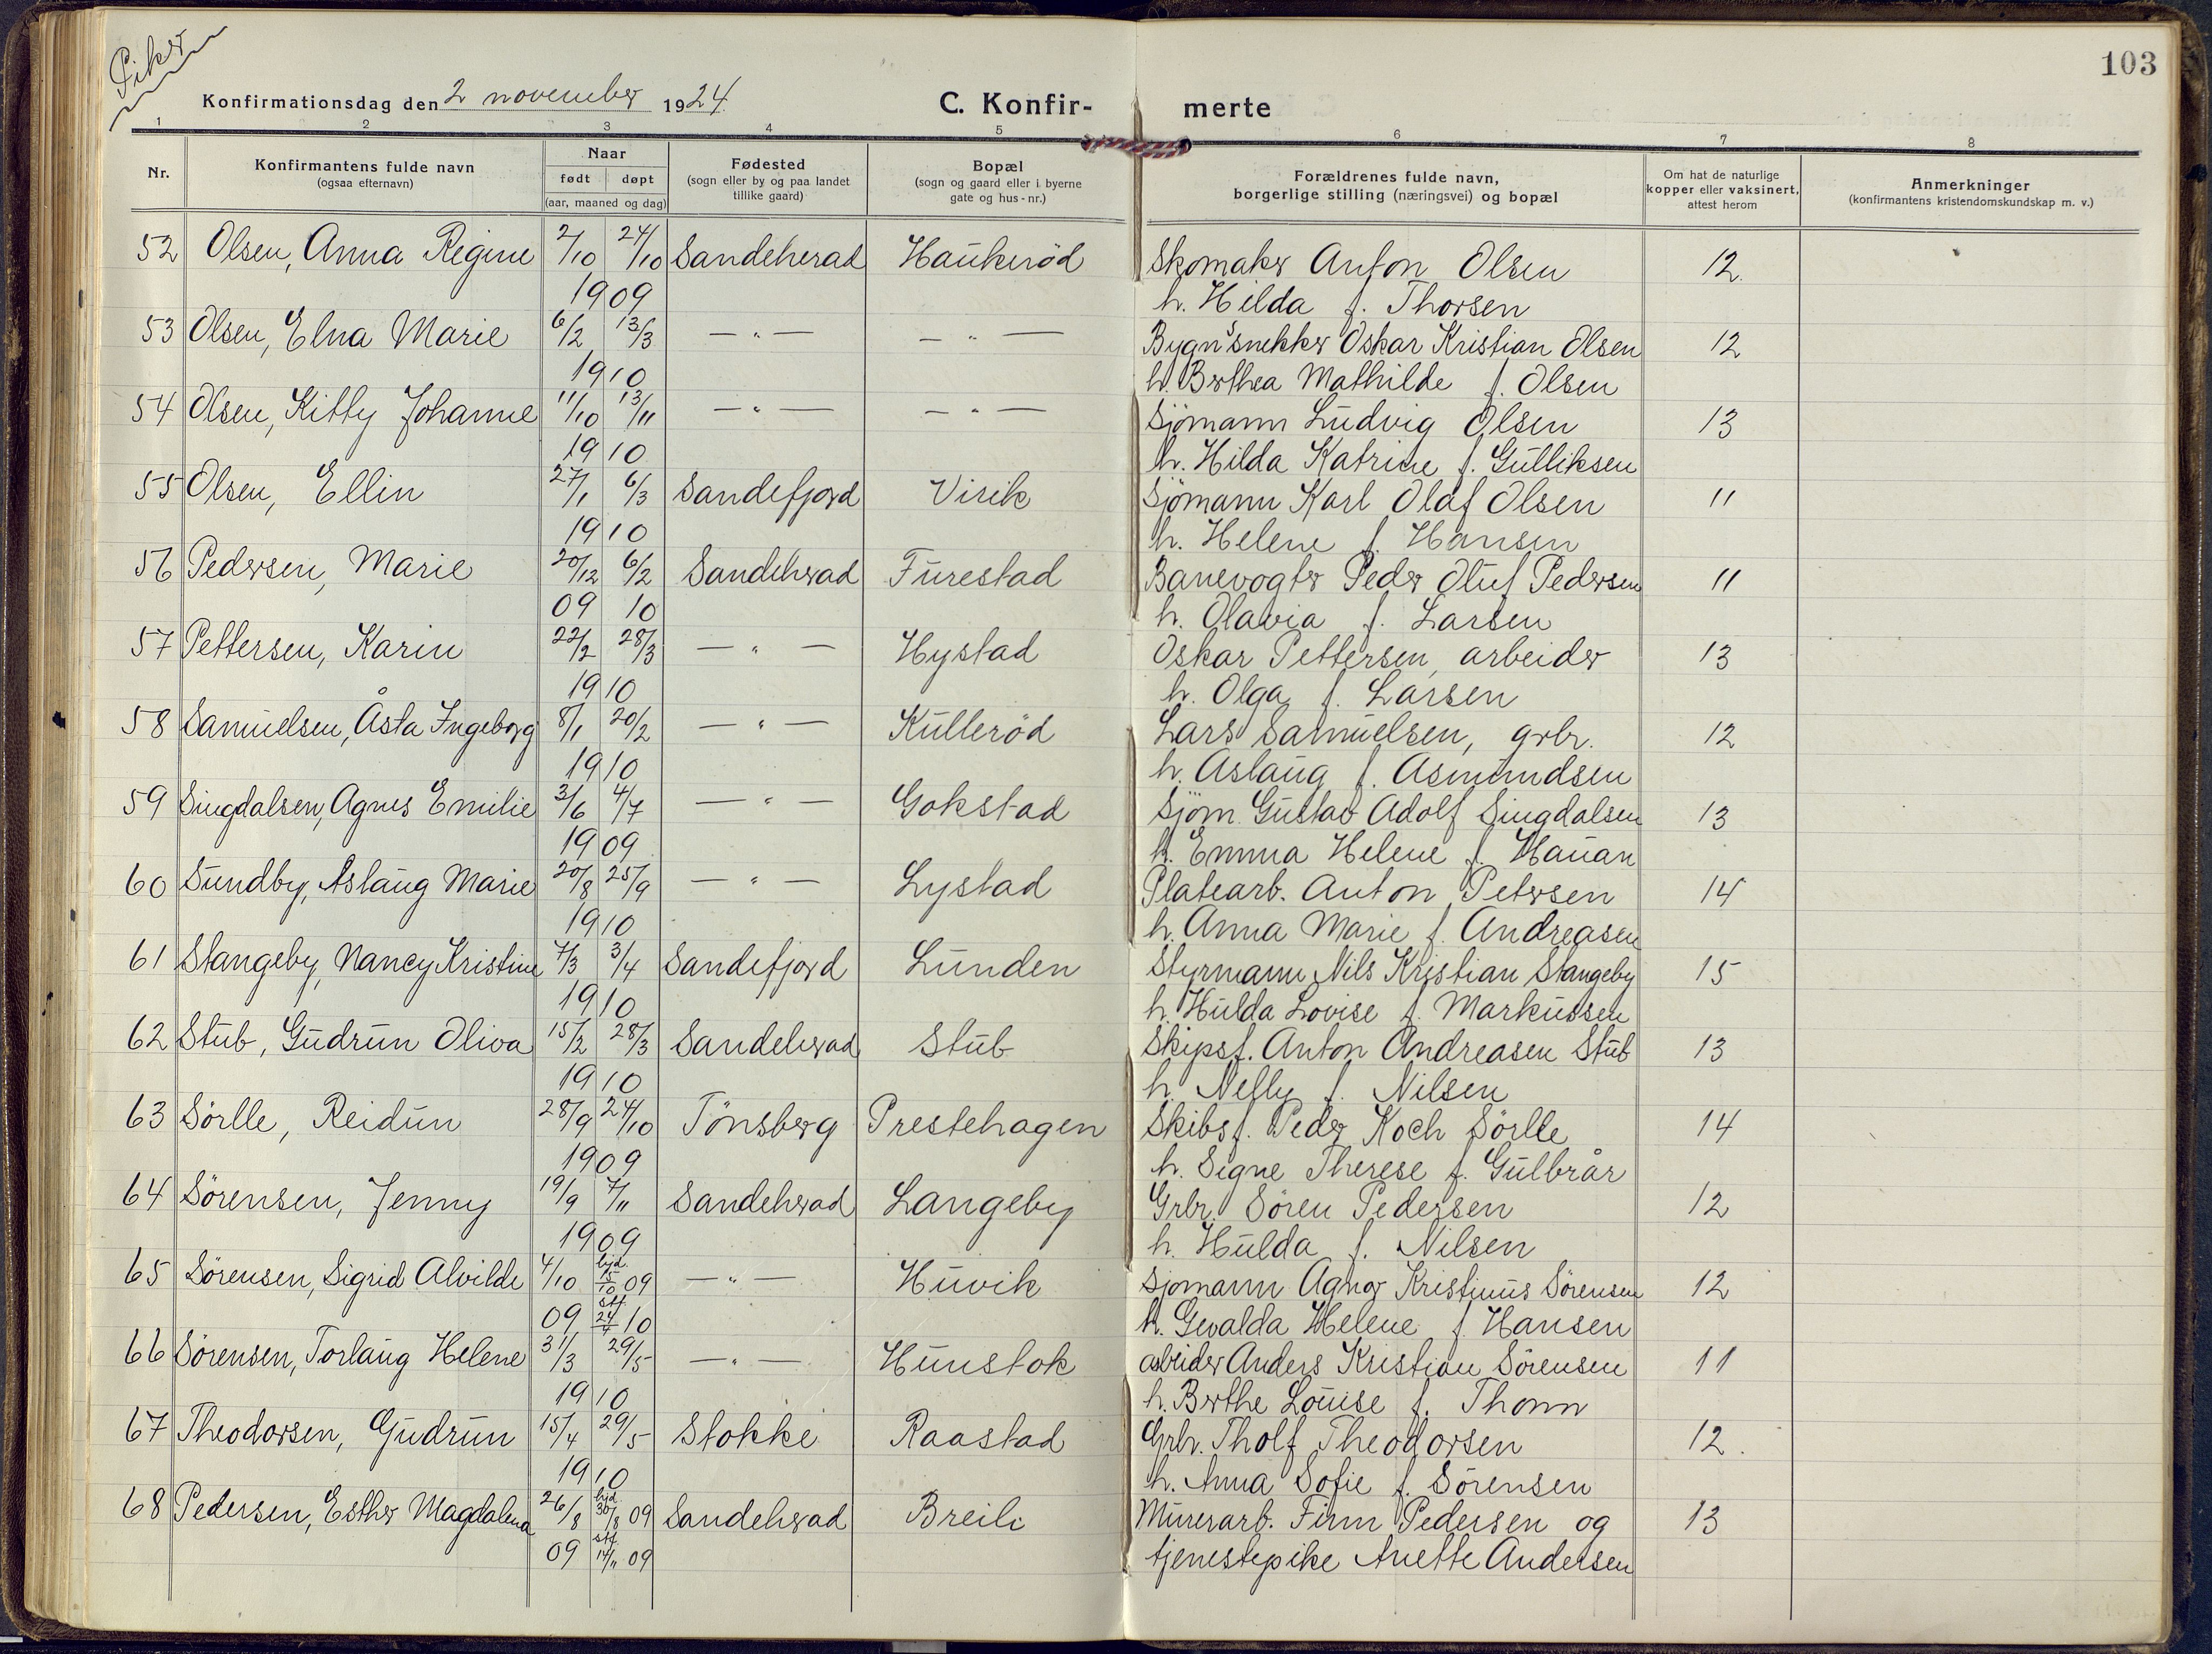 Piker
103
Konfirmationsdag den 2 november 1924.
C. Konfir- merte
1 2 3 4 5 6 7 8
Nr. Konfirmantens fulde navn (ogsaa efternavn) Naar født døpt (aar, maaned og dag) Fødested (sogn eller by og paa landet tillike gaard) Bopæl (sogn og gaard eller i byerne gate og hus-nr.) Forældrenes fulde navn, borgerlige stilling (næringsvei) og bopæl Om hat de naturlige kopper eller vaksinert, attest herom Anmerkninger (konfirmantens kristendomskundskap m. v.)
52 Olsen, Anna Regine 2/10 24/10 Sandeherad Haukerød Skomaker Anton Olsen 12.
1909 h. Hilda f. Thorsen
53 Olsen, Elna Marie 6/2 13/3 — " — — " — Bygn.snekker Oskar Kristian Olsen 12
1910 h. Berthea Mathilde f. Olsen
54 Olsen, Kitty Johanne 11/10 13/11 — " — — " — Sjömann Ludvig Olsen 13
1910 h. Hilda Katrine f. Gulliksen
55 Olsen, Ellin 27/1 6/3 Sandefjord Virik Sjömann Karl Olaf Olsen 11
1910 h. Helene f. Hansen
56 Pedersen, Marie 20/12 6/2 Sandeherad Furestad Banevogter Peder Oluf Pedersen 11
09 10 h. Olavia f. Larsen
57 Pettersen, Karin 22/2 28/3 — " — Hystad Oskar Pettersen, arbeider 13
1910 h. Olga f. Larsen
58 Samuelsen, Åsta Ingeborg 8/1 20/2 — " — Kullerød Lars Samuelsen, grbr. 12
1910 h. Aslaug f. Asmundsen
59 Singdalsen, Agnes Emilie 3/6 4/7 — " — Gokstad Sjöm. Gustav Adolf Singdalsen 13
1909 h. Emma Helene f. Hauan
60 Sundby, Aslaug Marie 20/8 25/9 — " — Lystad Platearb. Anton Petersen 14
1910 h. Anna Marie f. Andreasen
61 Stangeby, Nancy Kristine 7/3 3/4 Sandefjord Lunden Styrmann Nils Kristian Stangeby 15
1910 h. Hulda Lovise f. Markussen
62 Stub, Gudrun Oliva 15/2 28/3 Sandeherad Stub Skipsf. Anton Andreasen Stub 13
1910 h. Nelly f. Nilsen
63 Sörlle, Reidun 28/9 24/10 Tönsberg Prestehagen Skibsf. Peder Koch Sörlle 14
1909 h. Signe Therese f. Gulbrår
64 Sörensen, Jenny 19/9 7/11 Sandeherad Langeby Grbr. Sören Pedersen 12
1909 h. Hulda f. Nilsen
65 Sörensen, Sigrid Alvilde 4/10 hjd. 15/10 09 — " — Huvik Sjomann Agnor Kristinus Sörensen 12
09 stf. 24/4 10 h. Gevalda Helene f. Hansen
66 Sörensen, Torlaug Helene 31/3 29/5 — " — Hunstok arbeider Anders Kristian Sörensen 11
1910 h. Berthe Louise f. Thorn
67 Theodorsen, Gudrun 15/4 29/5 Stokke Raastad Grbr. Tholf Theodorsen 12.
1910 h. Anna Sofie f. Sörensen
68 Pedersen, Esther Magdalena 26/8 hjd. 30/8 09 Sandeherad Breili Murerarb. Finn Pedersen og 13
09 stf. 14/11 09 tjenestepike Anette Andersen